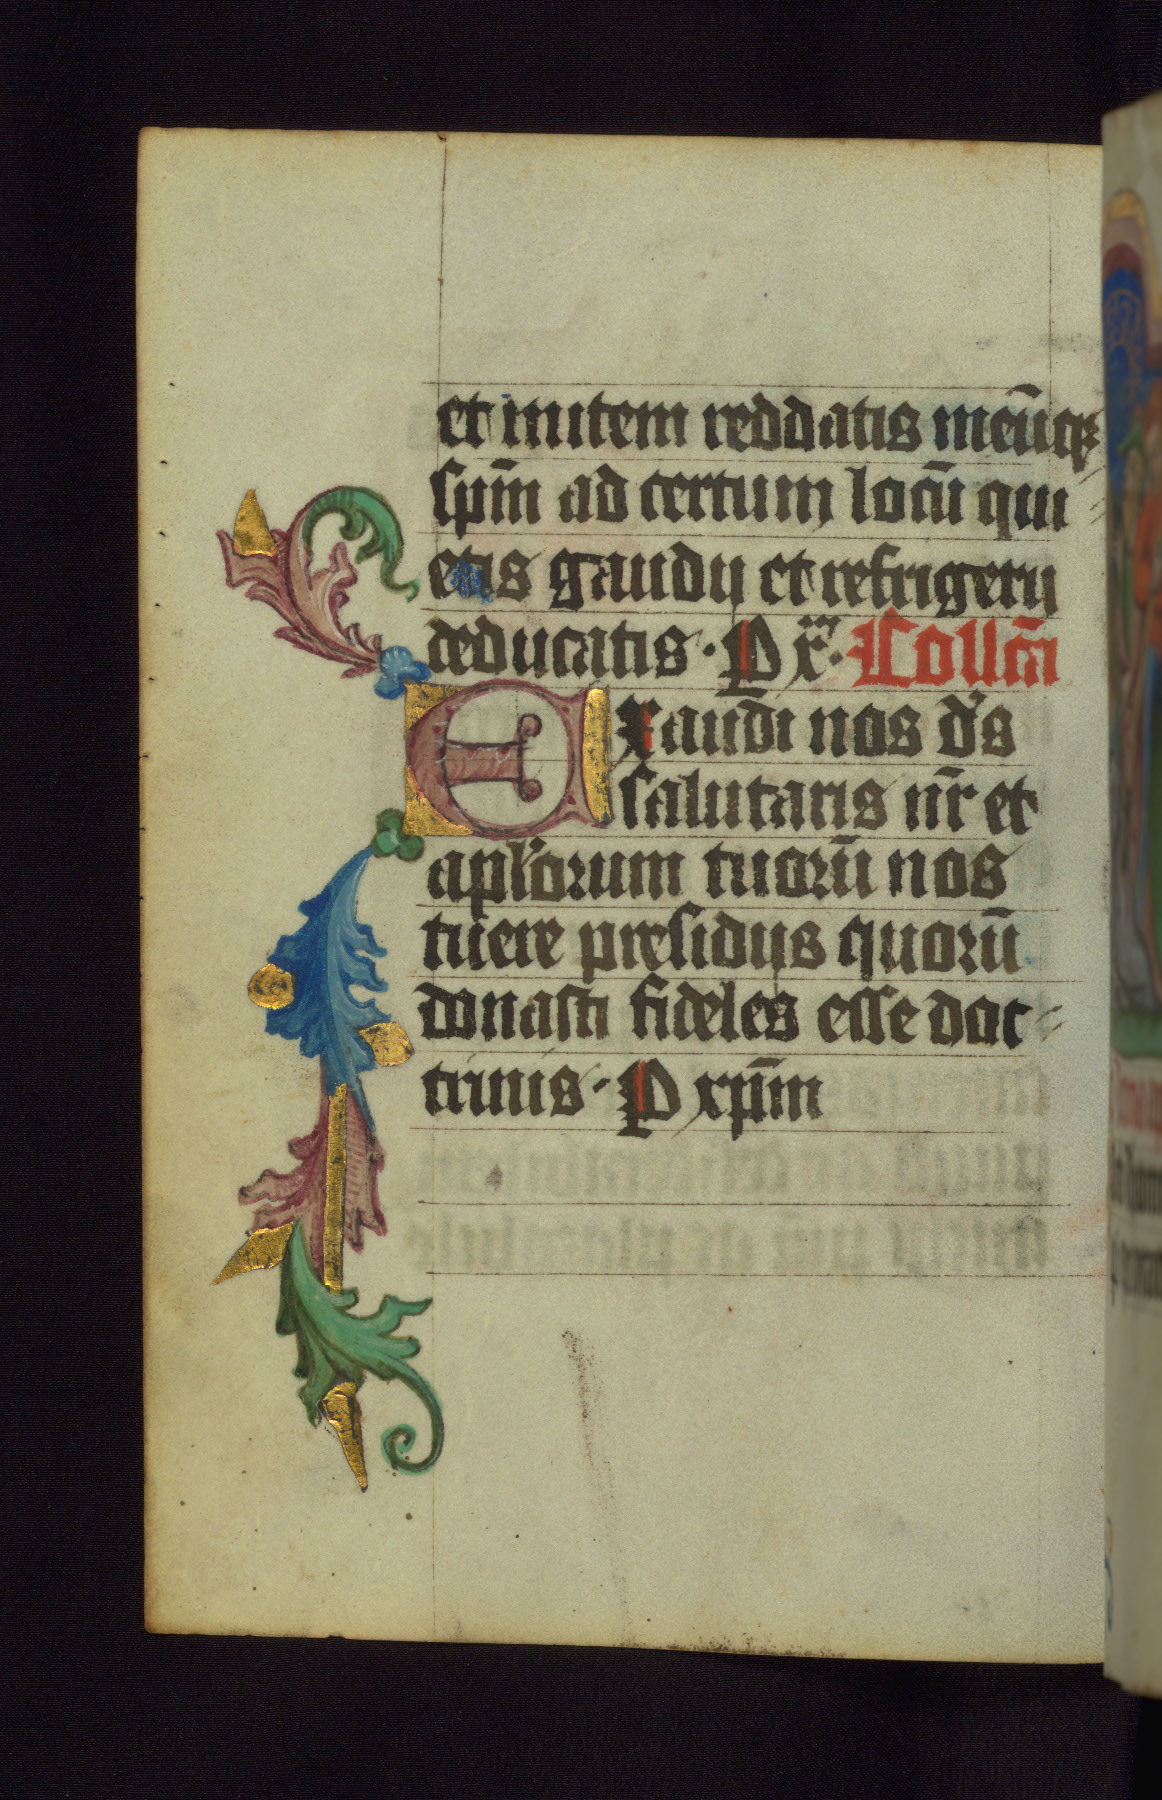 et mitem reddatis meūqꝫ
spm̄ ad certum locū qui
etis gaudij et refrigerij
deducatis · P xᵐ · Collcā
Exaudi nos ds̓
salutaris nr̄ et
apl'orum tuorū nos
tuere presidijs quorū
donasti fideles esse doc
trinis · P xpm̄